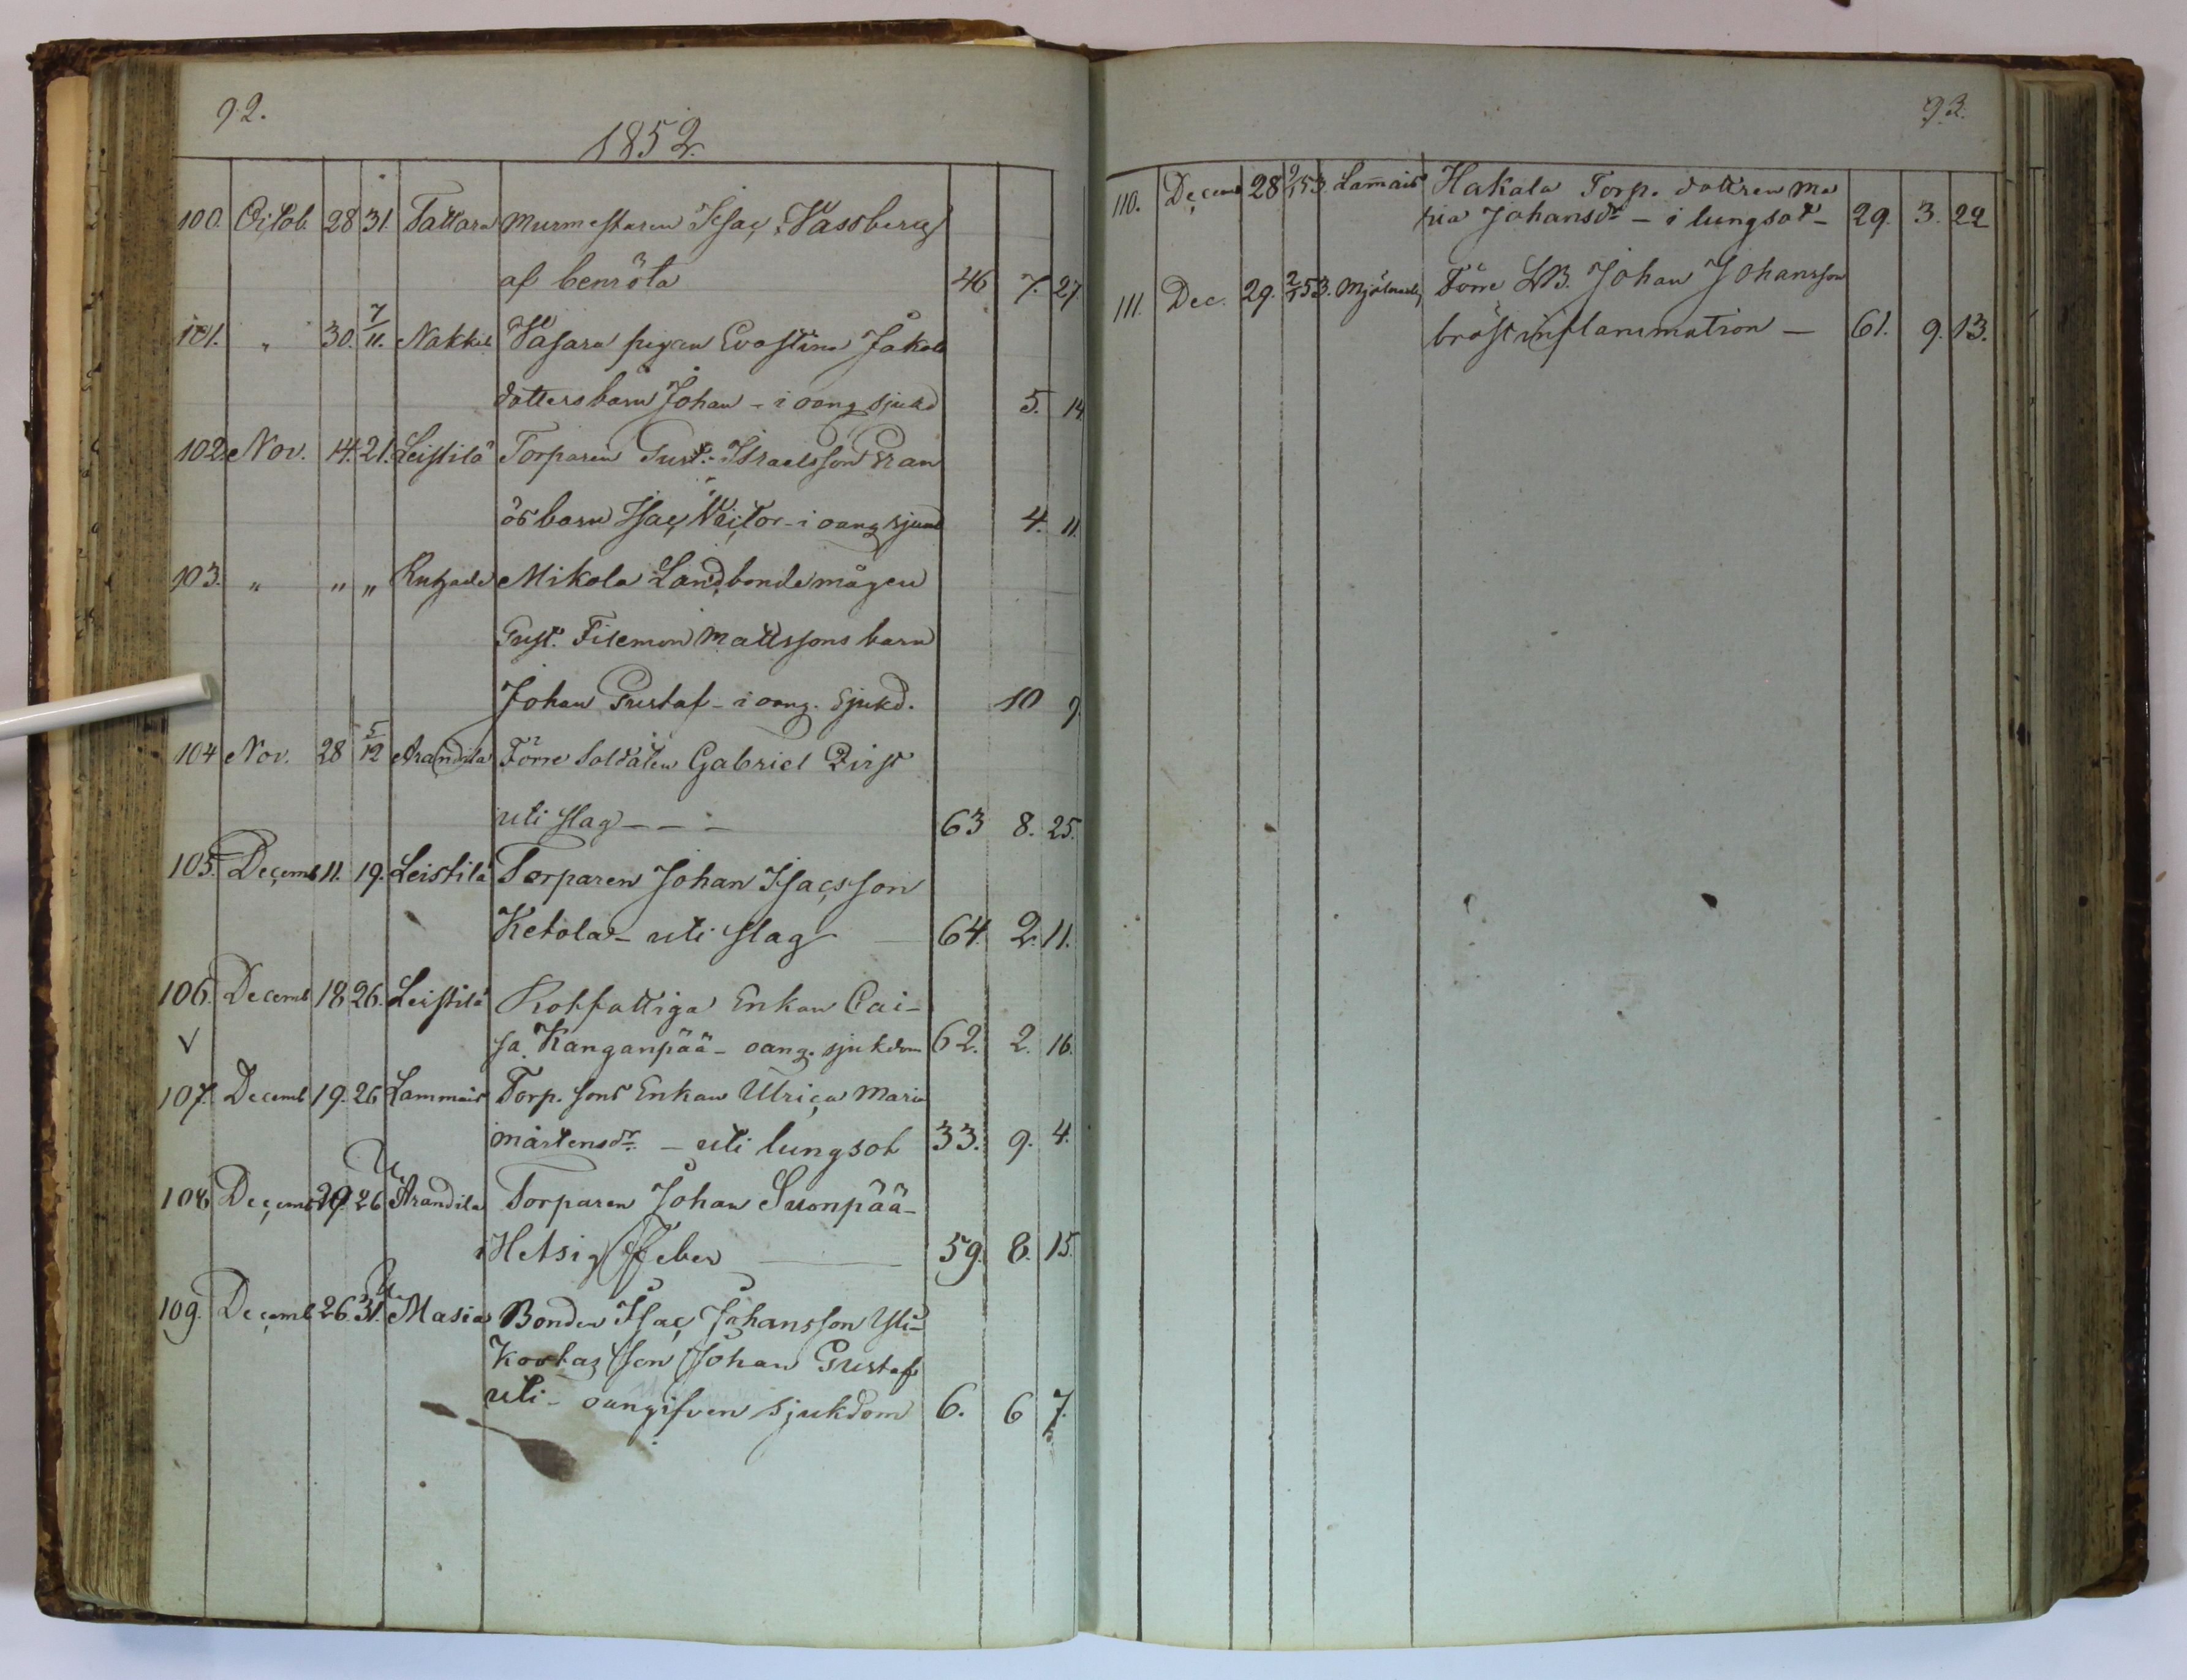 92.
1852.
100. Octob. 28 31. Tattara Murmestaren Isac Wassberg
af benröta 46 7. 27.
101. " 30. 7/11. Nakkil Wasara pigan Evastina Jakobs
dotters barn Johan - i oang sjukd 5. 14
102. Nov. 14. 21. Leistilä Torparen Gust. Israelsson Gran
ös barn Isac Victor - i oang sjukd 4. 11.
103. " " " Mikola Landbonde mågen
Gust. Filemon Mattssons barn
Johan Gustaf - i oang. sjukd. 10 9.
104 Nov. 28 5/12 Arandila Förre Soldaten Gabriel Qvist
uti slag - - - 63 8. 25.
105. Decemb 11. 19. Leistilä Torparen Johan Isacsson
Ketola - uti slag - 64. 2. 11.
106. Decemb 18 26. Leistilä Rotfattiga Enkan Cai-
sa Kanganpää - oang. sjukdom 62. 2. 16.
107. Decemb 19. 26 Lammais Torp. sons Enkan Ulrica Maria
Mårtensdr. - uti lungsot 33. 9. 4.
108 Decemb 26 Arandila Torparen Johan Suonpää -
i Hetsig Feber 59. 8. 15.
109. Decemb 26. 31. Masia Bonden Isac Johansson Yli-
Kostas son Johan Gustaf
uti - oangifven sjukdom 6. 6 7.
93.
110. Decemb 28 2/1 53 Lam̄ais Hakala Torp. dottren Ma
ria Johansdr - i lungsot - 29. 3. 22
111. Dec. 29. 2/1 53. Förre LB. Johan Johansson
bröstinflammation - 61. 9. 13.